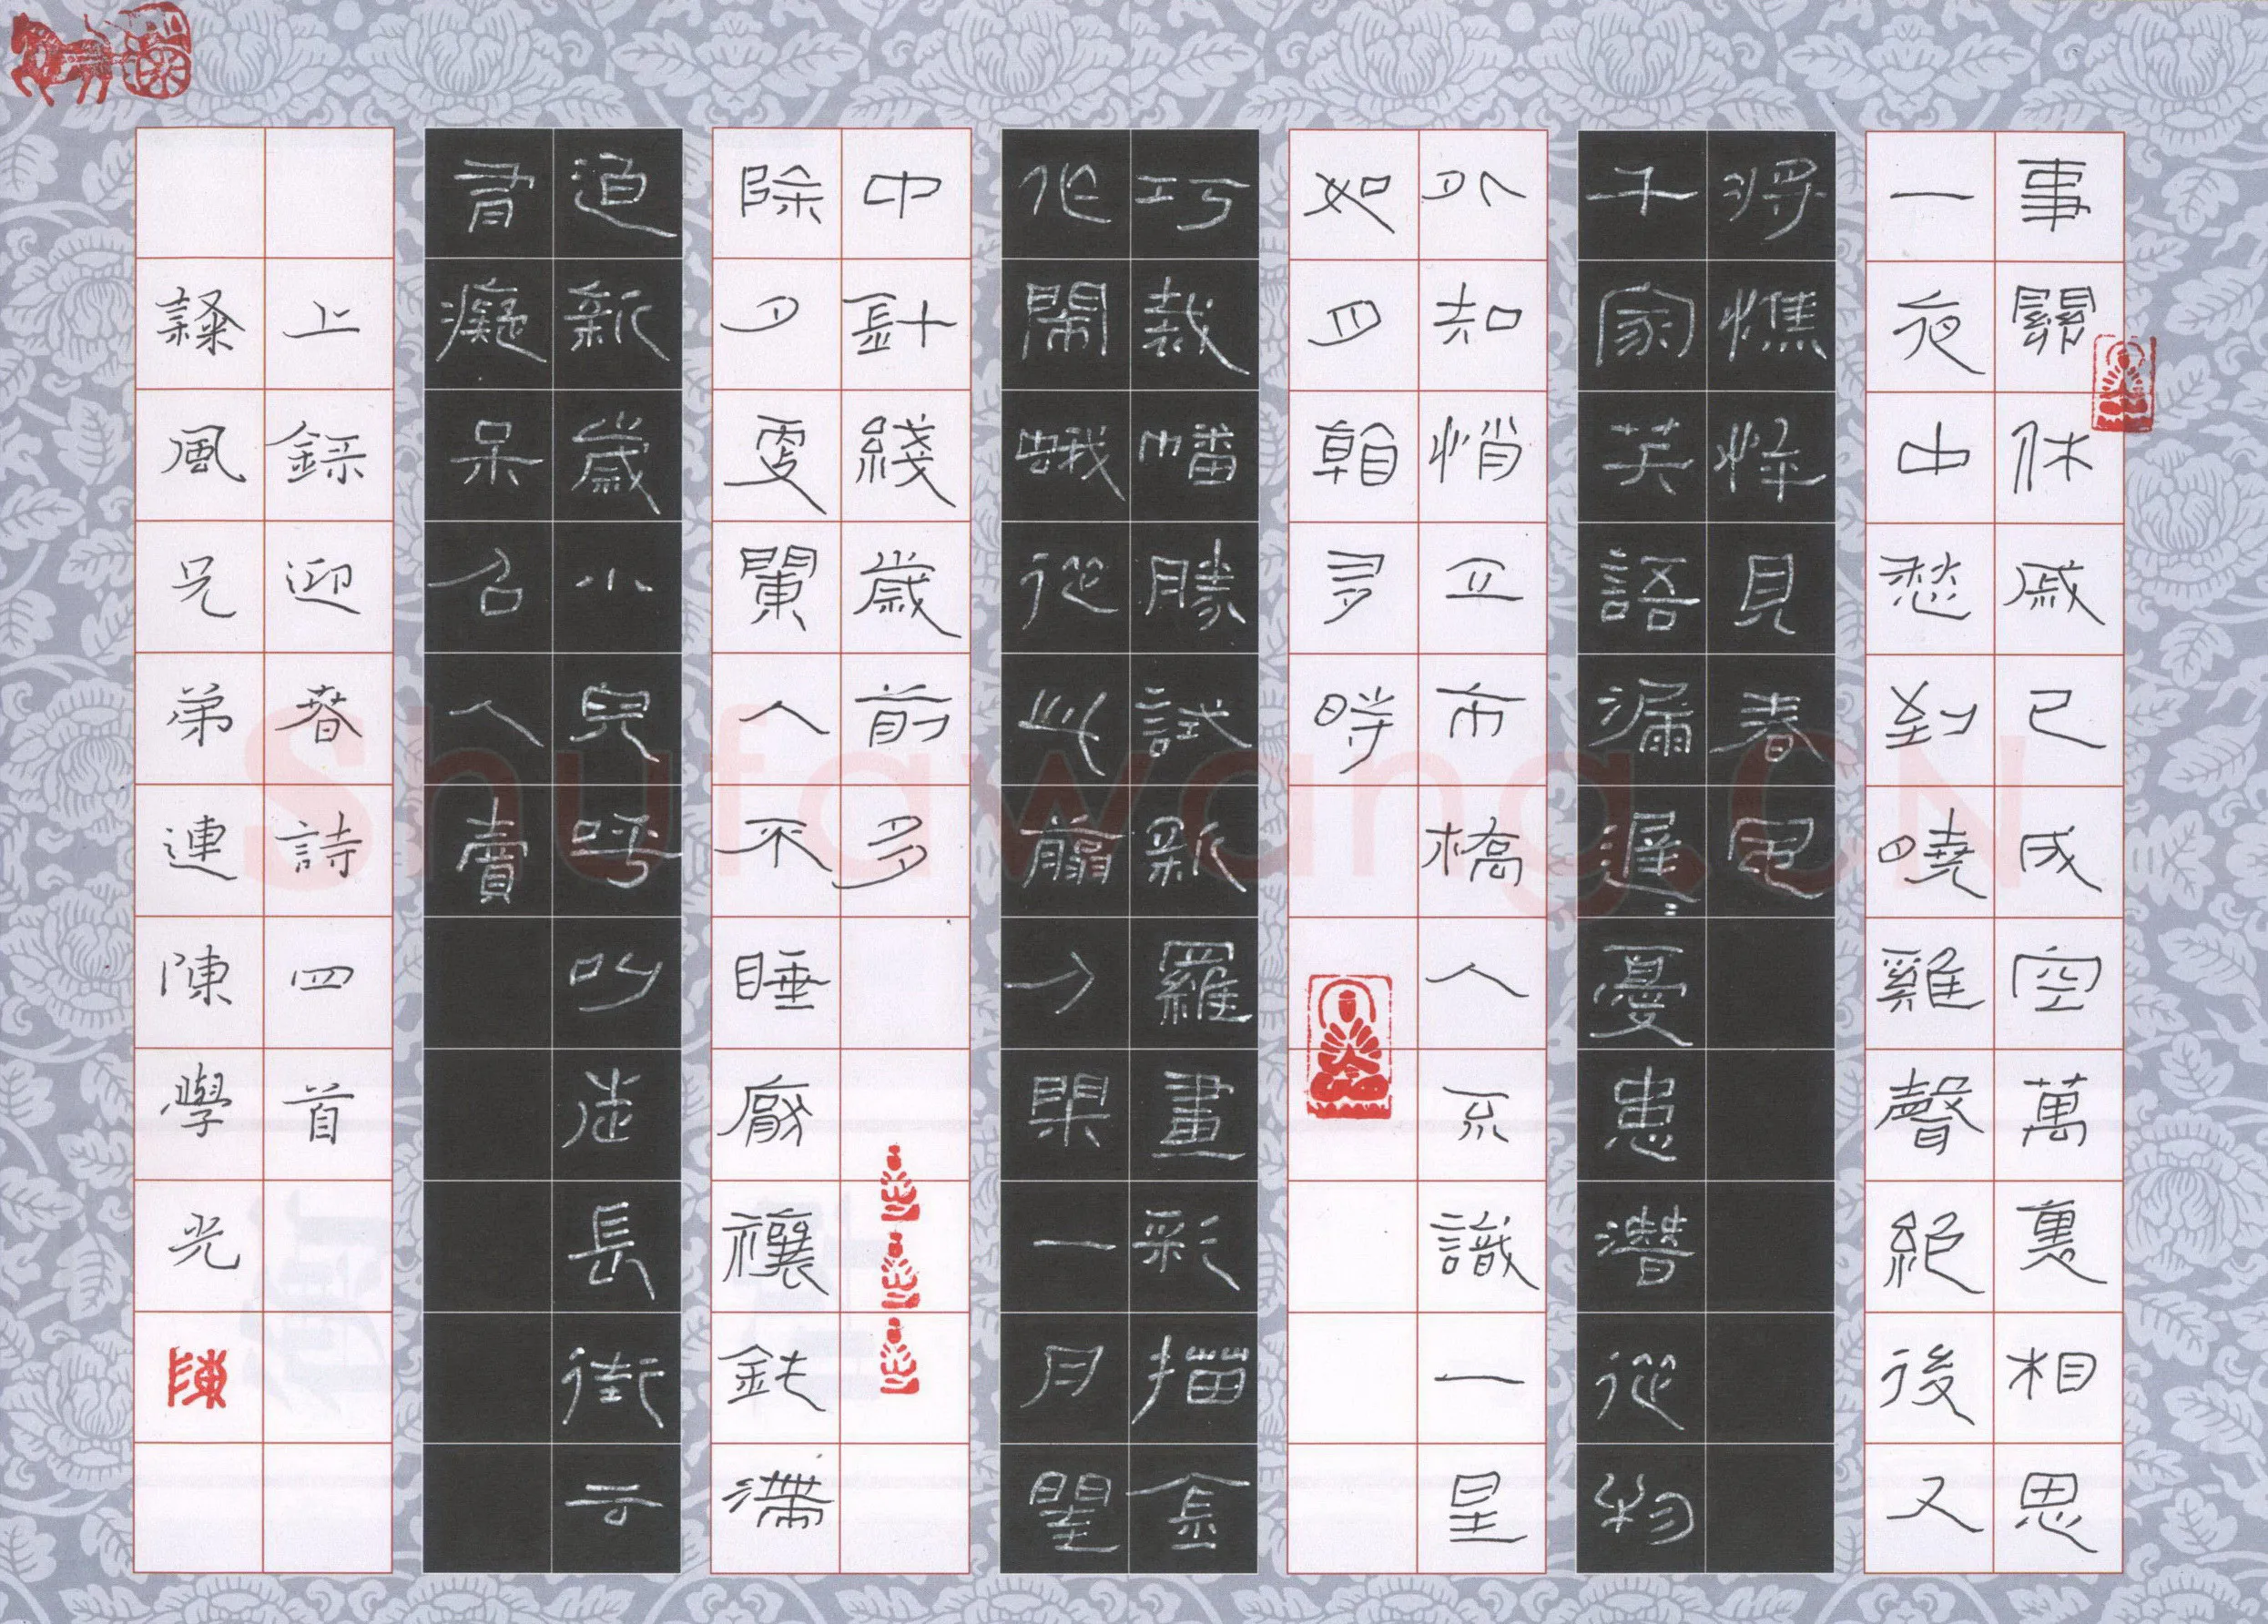 事關休戚已成空萬裏相思
一夜中愁到曉雞聲絕後又
將憔悴見春風
千家笑語漏遲々憂患潛從物
外知悄立市橋人不識一星
如月看多時
巧裁幡勝試新羅畫彩描金
作鬧蛾從此剪刀閑一月閨
中針綫歲前多
除夕更闌人不睡厭禳鈍滯
迫新歲小兒呼叫走長街云
有癡呆召人賣
上錄迎春詩四首
風兄弟連陳學光
陳
Shufawang.CN